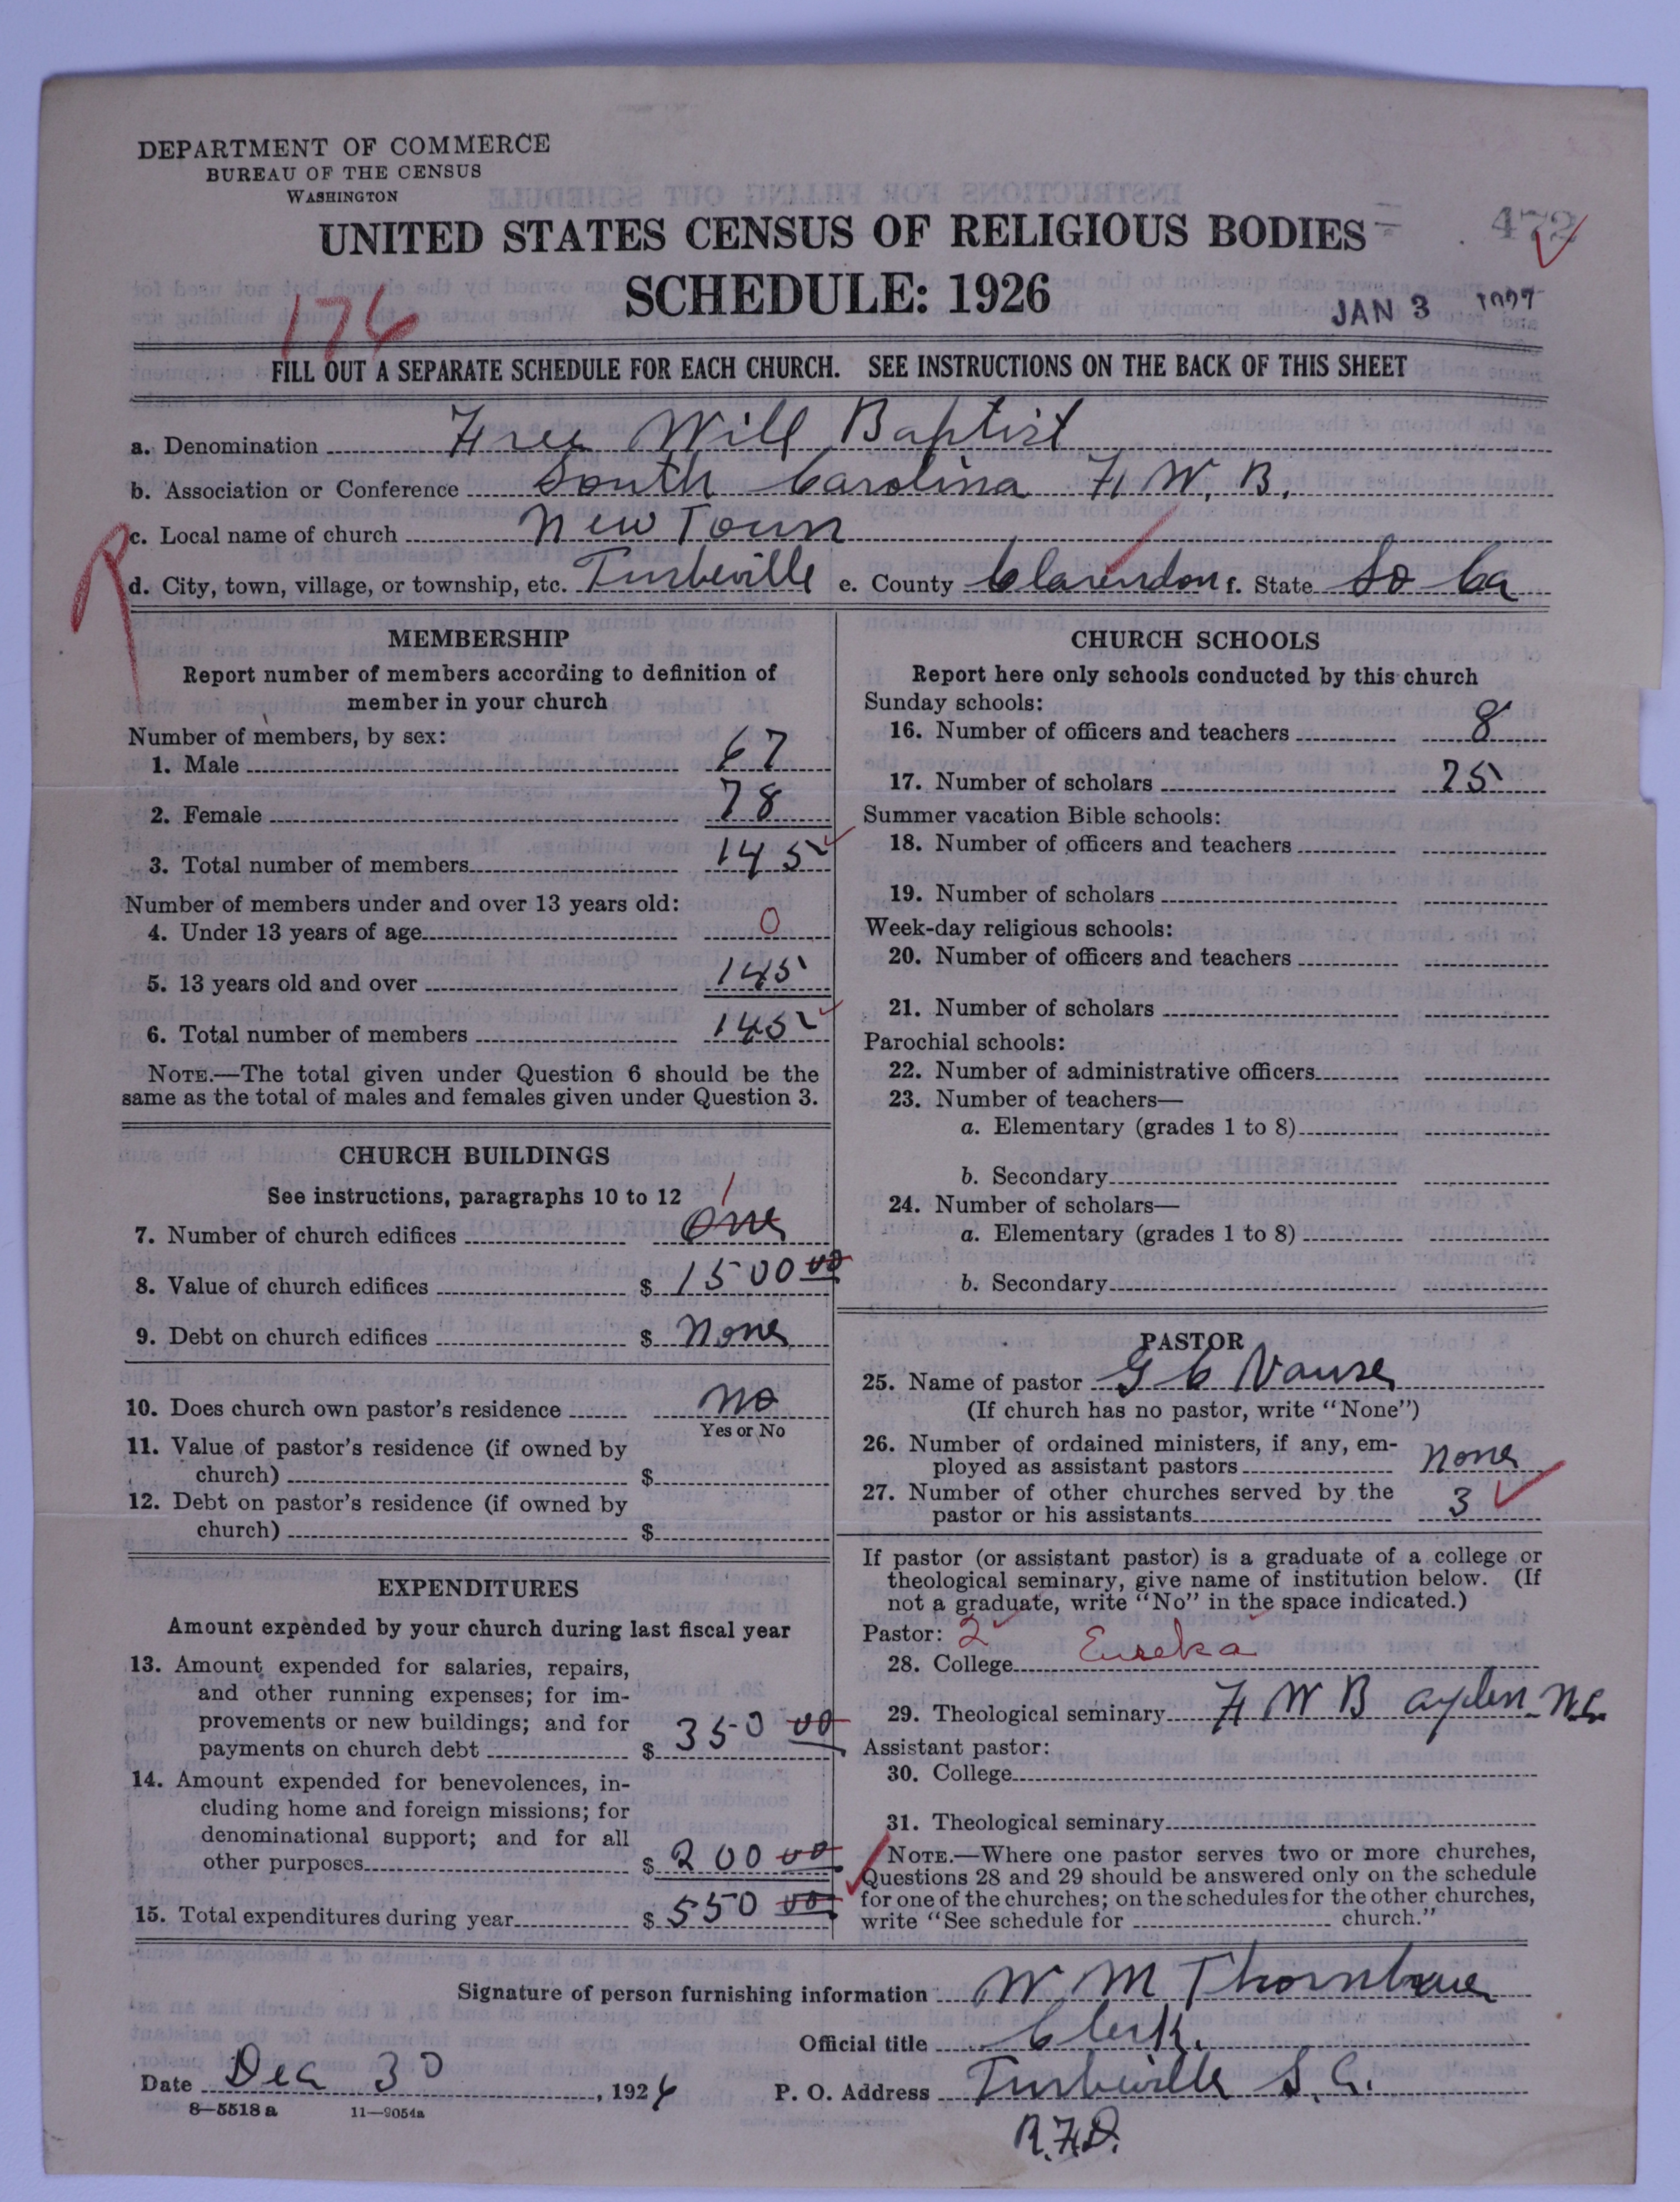 DEPARTMENT OF COMMERCE
BUREAU OF THE CENSUS
WASHINGTON
UNITED STATES CENSUS OF RELIGIOUS BODIES
472
SCHEDULE: 1926
JAN 3 1927
176
FILL OUT A SEPARATE SCHEDULE FOR EACH CHURCH. SEE INSTRUCTIONS ON THE BACK OF THIS SHEET
a. Denomination Free Will Baptist
b. Association or Conference South Carolina F. W. B.
R
c. Local name of church New Town
d. City, town, village, or township, etc. Turbeville e. County Clarendon f. State So Ca
MEMBERSHIP
Report number of members according to definition of
member in your church
Number of members, by sex:
1. Male 67
2. Female 78
3. Total number of members 145
Number of members under and over 13 years old:
4. Under 13 years of age 0
5. 13 years old and over 145
6. Total number of members 145
NOTE.—The total given under Question 6 should be the
same as the total of males and females given under Question 3.
CHURCH BUILDINGS
See instructions, paragraphs 10 to 12 1
7. Number of church edifices One
8. Value of church edifices $ 1500 00
9. Debt on church edifices $ None
10. Does church own pastor's residence No
Yes or No
11. Value of pastor's residence (if owned by
church) $
12. Debt on pastor's residence (if owned by
church) $
EXPENDITURES
Amount expended by your church during last fiscal year
13. Amount expended for salaries, repairs,
and other running expenses; for im-
provements or new buildings; and for
payments on church debt $ 350 00
14. Amount expended for benevolences, in-
cluding home and foreign missions; for
denominational support; and for all
other purposes $ 200 00
15. Total expenditures during year $ 550 00
CHURCH SCHOOLS
Report here only schools conducted by this church
Sunday schools:
16. Number of officers and teachers 8
17. Number of scholars 75
Summer vacation Bible schools:
18. Number of officers and teachers
19. Number of scholars
Week-day religious schools:
20. Number of officers and teachers
21. Number of scholars
Parochial schools:
22. Number of administrative officers
23. Number of teachers—
a. Elementary (grades 1 to 8)
b. Secondary
24. Number of scholars—
a. Elementary (grades 1 to 8)
b. Secondary
PASTOR
25. Name of pastor G C Vause
(If church has no pastor, write "None")
26. Number of ordained ministers, if any, em-
ployed as assistant pastors None
27. Number of other churches served by the
pastor or his assistants 3
If pastor (or assistant pastor) is a graduate of a college or
theological seminary, give name of institution below. (If
not a graduate, write "No" in the space indicated.)
Pastor: 2
28. College Eureka
29. Theological seminary F W B Ayden N.C.
Assistant pastor:
30. College
31. Theological seminary
NOTE.—Where one pastor serves two or more churches,
Questions 28 and 29 should be answered only on the schedule
for one of the churches; on the schedules for the other churches,
write "See schedule for church."
Signature of person furnishing information W M Thornhue
Official title Clerk.
Date Dec 30, 1926 P. O. Address Turbeville S. C.
8-5518a 11-9054a
R.F.D.